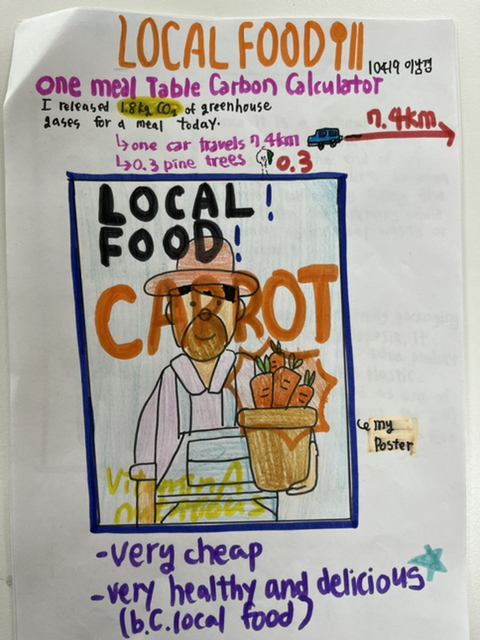 LOCAL FOOD!!!
10419 이남경
One meal Table Carbon Calculator
I released 1.8kg CO₂ of greenhouse
gases for a meal today.
↳ one car travels 7.4km
7.4km
↳ 0.3 pine trees
0.3
LOCAL!
FOOD!
CARROT
my
Poster
Vitamin A
nutritious
-very cheap
-very healthy and delicious
(b.c.local food)